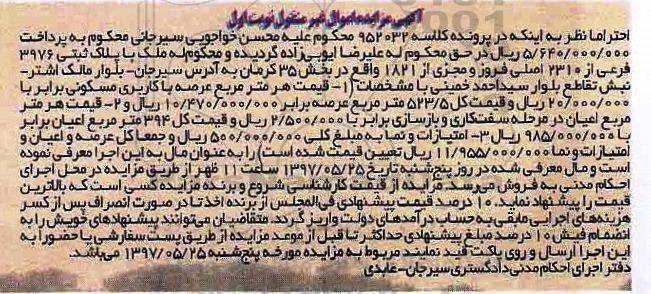 آگهی مزایده اموال غیر منقول نوبت اول
احتراما نظر به اینکه در پرونده کلاسه ۹۵۲۰۳۲ محکوم علیه محسن خواجویی سیرجانی محکوم به پرداخت
۵/۶۴۰/۰۰۰/۰۰۰ ریال در حق محکوم له علیرضا ایوبی زاده گردیده و محکوم له ملک با پلاک ثبتی ۳۹۷۶
فرعی از ۲۳۱۰ اصلی فروز و مجزی از ۱۸۲۱ واقع در بخش ۳۵ کرمان به آدرس سیرجان- بلوار مالک اشتر-
نبش تقاطع بلوار سیداحمد خمینی با مشخصات (۱- قیمت هر متر مربع عرصه با کاربری مسکونی برابر با
۲۰/۰۰۰/۰۰۰ ریال و قیمت کل ۵۲۳/۵ متر مربع عرصه برابر ۱۰/۴۷۰/۰۰۰/۰۰۰ ریال و ۲- قیمت هر متر
مربع اعیان در مرحله سفت‌کاری و بازسازی برابر با ۲/۵۰۰/۰۰۰ ریال و قیمت کل ۳۹۴ متر مربع اعیان برابر
با ۹۸۵/۰۰۰/۰۰۰ ریال ۳- امتیازات و نما به مبلغ کلی ۵۰۰/۰۰۰/۰۰۰ ریال و جمعا کل عرصه و اعیان و
امتیازات و نما ۱۱/۹۵۵/۰۰۰/۰۰۰ ریال تعیین قیمت شده است) را به عنوان مال به این اجرا معرفی نموده
است و مال معرفی شده در روز پنج‌شنبه تاریخ ۱۳۹۷/۰۵/۲۵ ساعت ۱۱ ظهر از طریق مزایده در محل اجرای
احکام مدنی به فروش می‌رسد. مزایده از قیمت کارشناسی شروع و برنده مزایده کسی است که بالاترین
قیمت را پیشنهاد نماید. ۱۰ درصد قیمت پیشنهادی فی‌المجلس از برنده اخذ تا در صورت انصراف پس از کسر
هزینه‌های اجرایی مابقی به حساب درآمدهای دولت واریز گردد. متقاضیان می‌توانند پیشنهادهای خویش را به
انضمام فیش ۱۰ درصد مبلغ پیشنهادی حداکثر تا قبل از موعد مزایده از طریق پست سفارشی یا حضورا به
این اجرا ارسال و روی پاکت قید نمایند مربوط به مزایده مورخه پنج‌شنبه ۱۳۹۷/۰۵/۲۵ می‌باشد.
دفتر اجرای احکام مدنی دادگستری سیرجان-عابدی